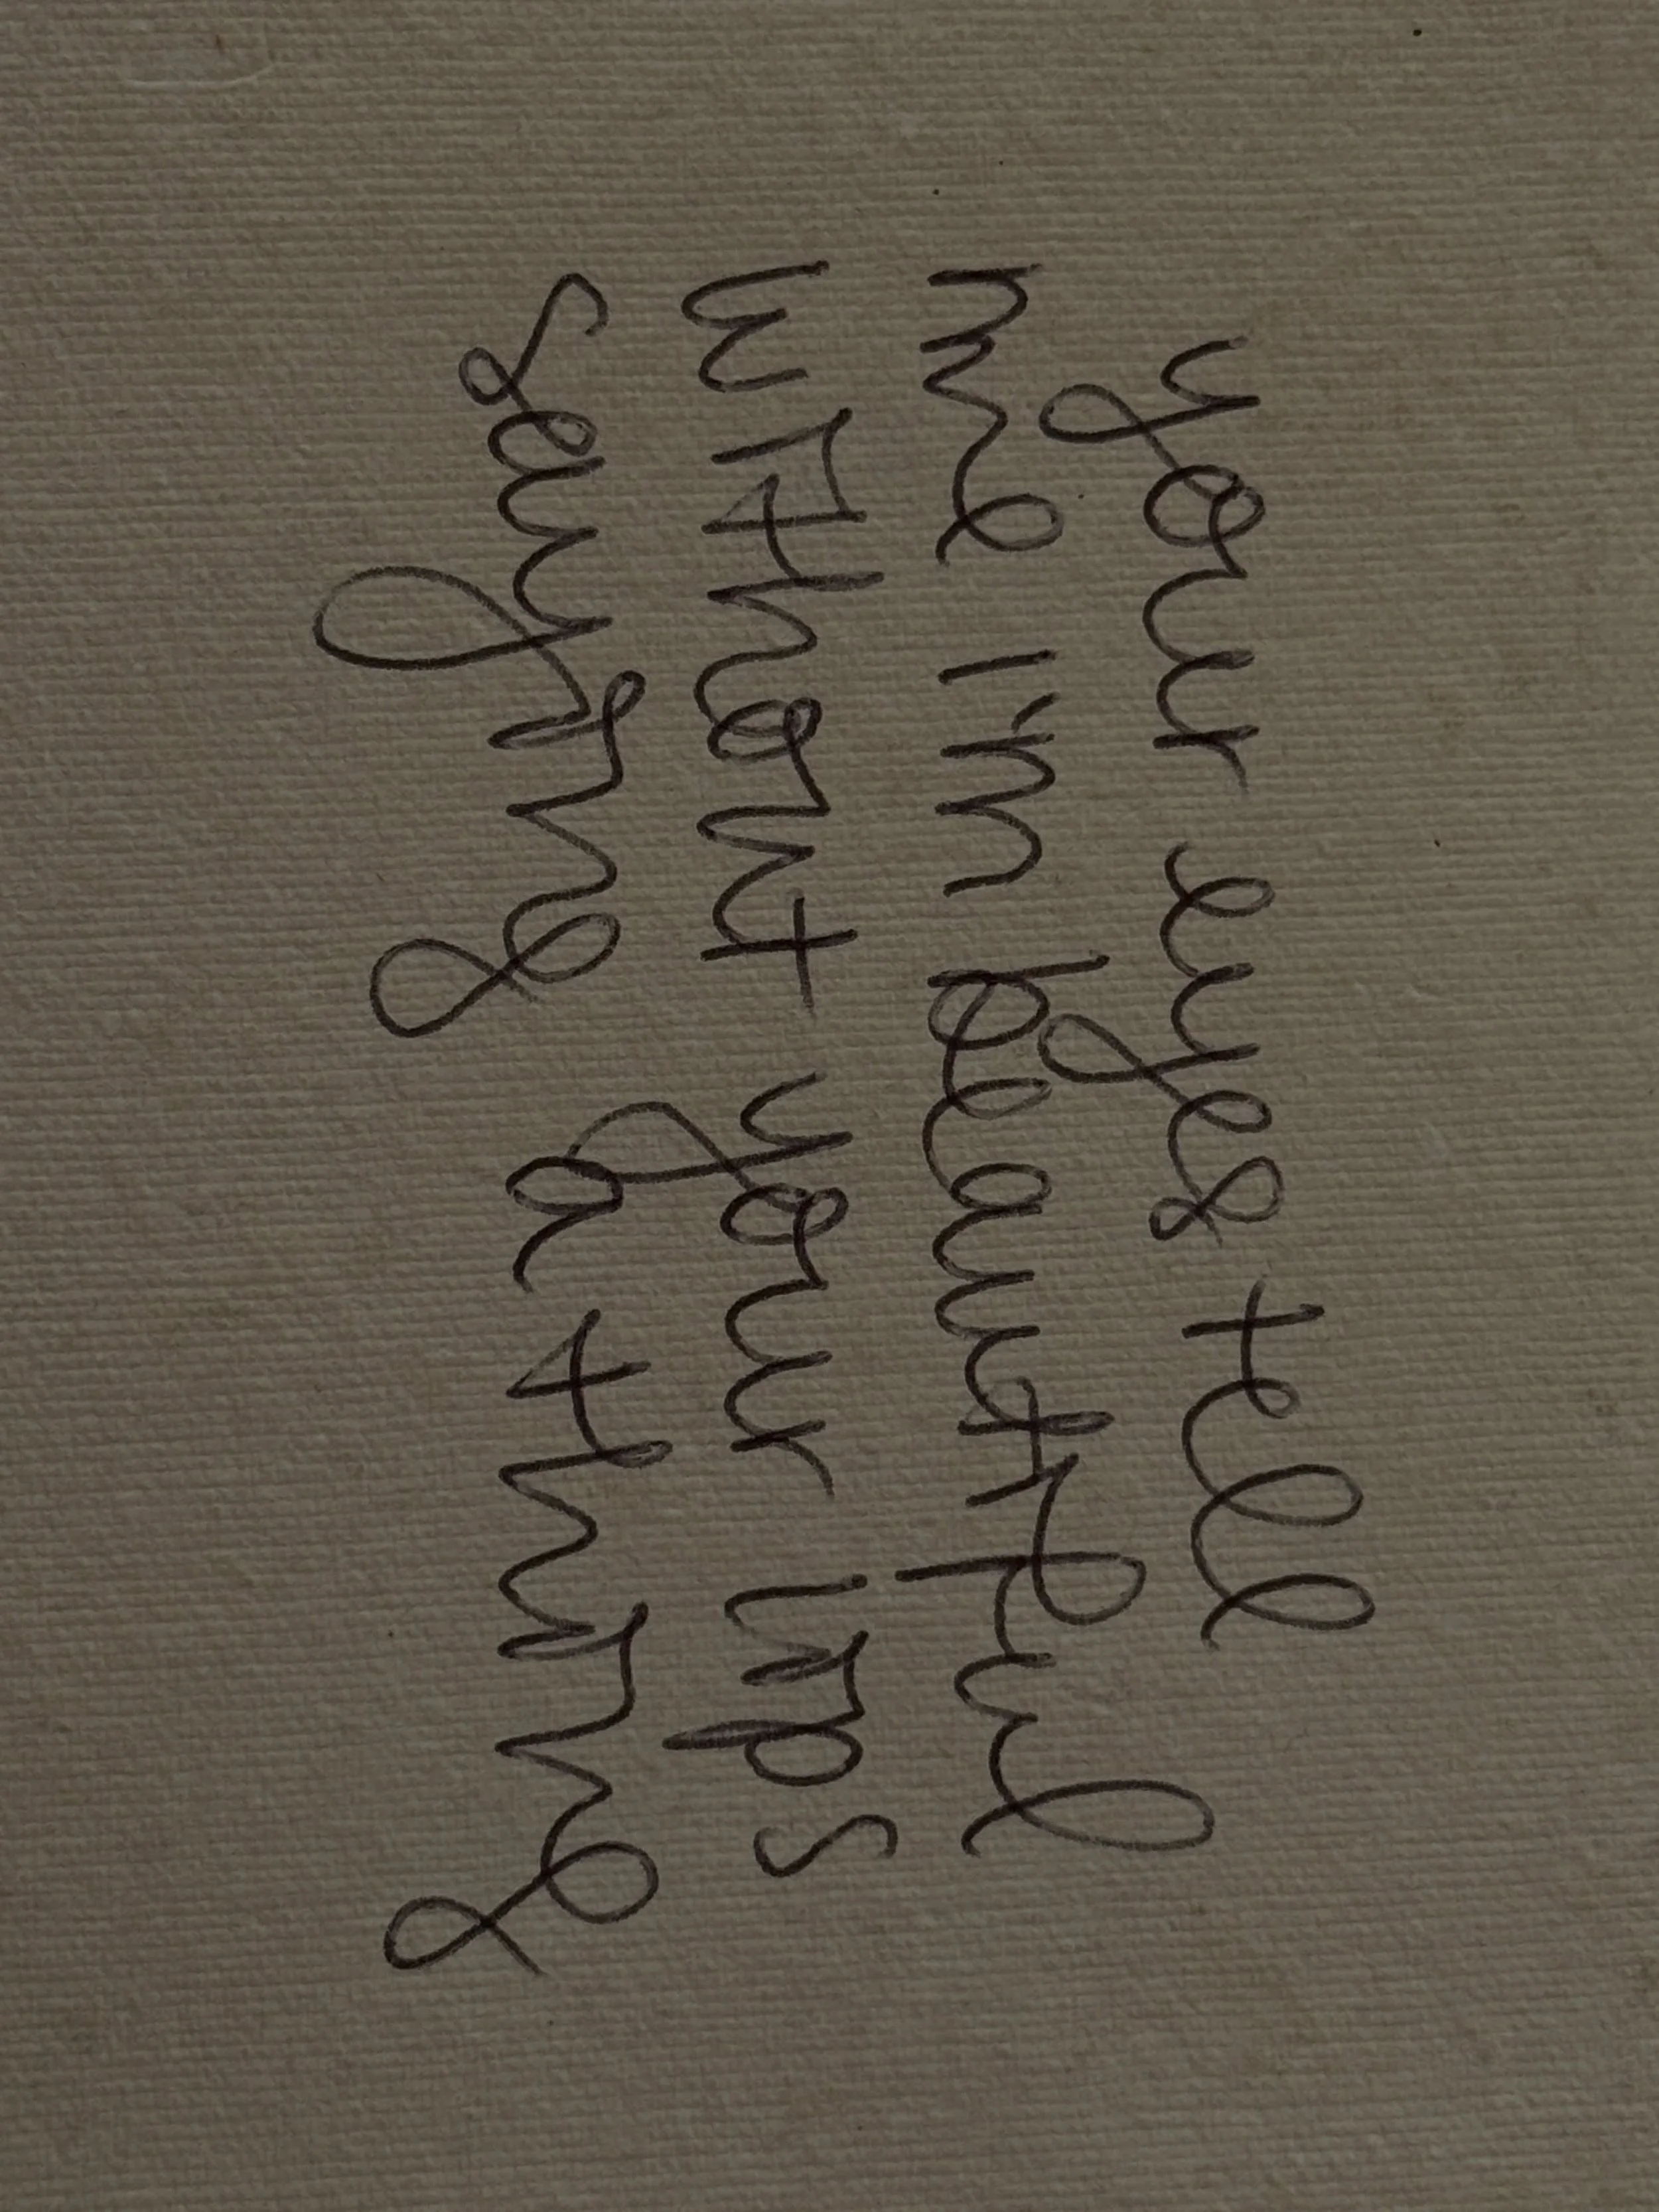 your eyes tell
me i'm beautiful
without your lips
saying a thing